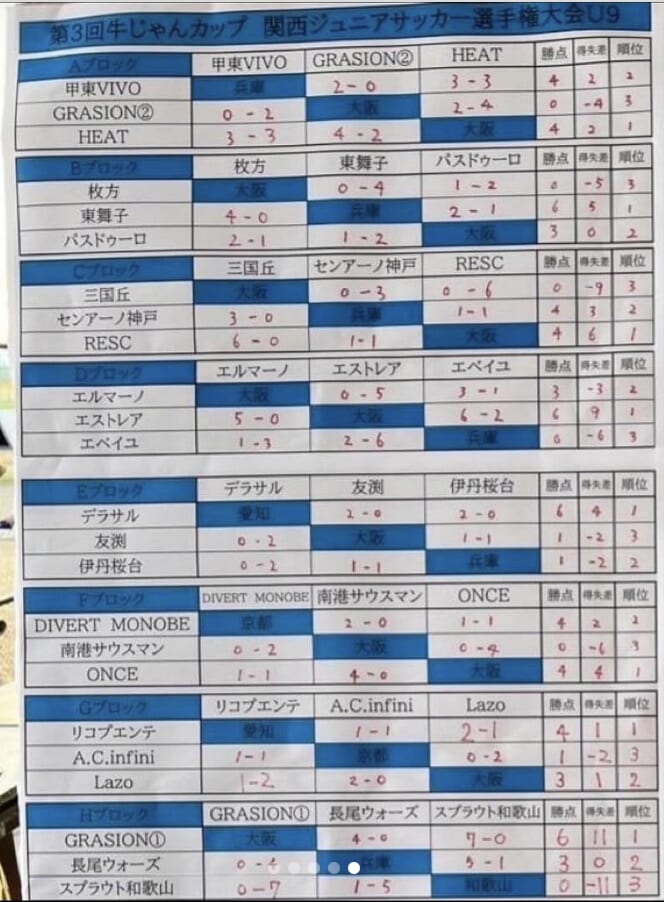 第3回牛じゃんカップ 関西ジュニアサッカー選手権大会U9
Aブロック 甲東VIVO GRASION② HEAT 勝点 得失差 順位
甲東VIVO 兵庫 2-0 3-3 4 2 2
GRASION② 0-2 大阪 2-4 0 -4 3
HEAT 3-3 4-2 大阪 4 2 1
Bブロック 枚方 東舞子 パスドゥーロ 勝点 得失差 順位
枚方 大阪 0-4 1-2 0 -5 3
東舞子 4-0 兵庫 2-1 6 5 1
パスドゥーロ 2-1 1-2 大阪 3 0 2
Cブロック 三国丘 センアーノ神戸 RESC 勝点 得失差 順位
三国丘 大阪 0-3 0-6 0 -9 3
センアーノ神戸 3-0 兵庫 1-1 4 3 2
RESC 6-0 1-1 大阪 4 6 1
Dブロック エルマーノ エストレア エベイユ 勝点 得失差 順位
エルマーノ 大阪 0-5 3-1 3 -3 2
エストレア 5-0 大阪 6-2 6 9 1
エベイユ 1-3 2-6 兵庫 0 -6 3
Eブロック デラサル 友渕 伊丹桜台 勝点 得失差 順位
デラサル 愛知 2-0 2-0 6 4 1
友渕 0-2 大阪 1-1 1 -2 3
伊丹桜台 0-2 1-1 兵庫 1 -2 2
Fブロック DIVERT MONOBE 南港サウスマン ONCE 勝点 得失差 順位
DIVERT MONOBE 京都 2-0 1-1 4 2 2
南港サウスマン 0-2 大阪 0-4 0 -6 3
ONCE 1-1 4-0 大阪 4 4 1
Gブロック リコプエンテ A.C.infini Lazo 勝点 得失差 順位
リコプエンテ 愛知 1-1 2-1 4 1 1
A.C.infini 1-1 京都 0-2 1 -2 3
Lazo 1-2 2-0 大阪 3 1 2
Hブロック GRASION① 長尾ウォーズ スプラウト和歌山 勝点 得失差 順位
GRASION① 大阪 4-0 7-0 6 11 1
長尾ウォーズ 0-4 兵庫 5-1 3 0 2
スプラウト和歌山 0-7 1-5 和歌山 0 -11 3